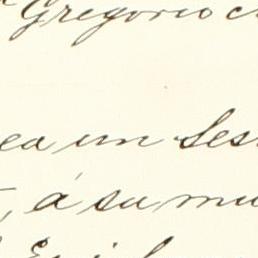 Gregorio c
ea un Les
, á su mu